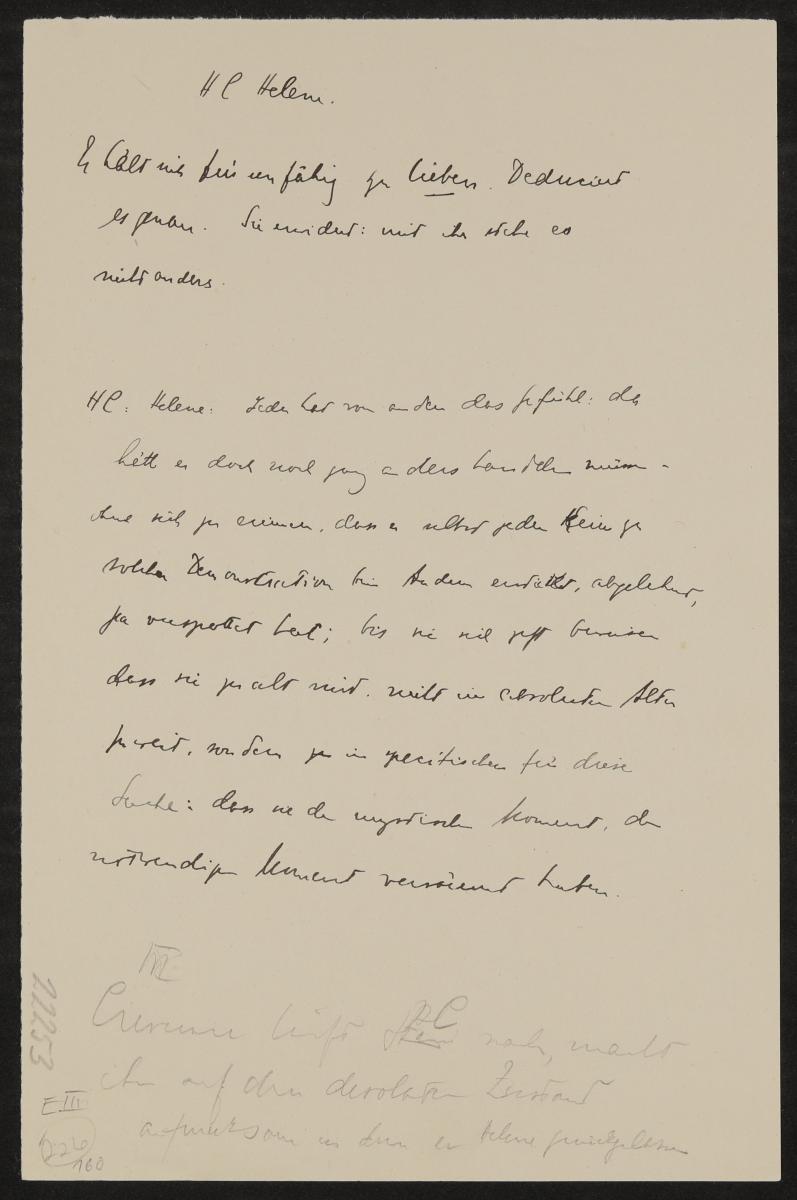 HC Helene.
Er hält sich für unfähig zu lieben. Deduciert
es genau. Sie erwidert: mit ihr stehe es
nicht anders.
HC: Helene: Jeder hat vom andern das Gefühl: da
hätte er doch noch ganz anders handeln müssen –
ohne sich zu erinnern, dass er selbst jeden Keim zu
solchen Demonstration beim Andern erstickt, abgelehnt,
ja verspottet hat; bis sie sich jetzt beweisen
dass sie zu alt sind. nicht im absoluten Alter
zu weit, sondern zu im specifischen für diese
Sache: dass sie den mystischen Moment, den
notwendigen Moment versäumt haben.
III
Crescence läuft HC nach, macht
ihn auf den desolaten Zustand
aufmerksam in dem er Helene zurückgelassen
22253
E III
160